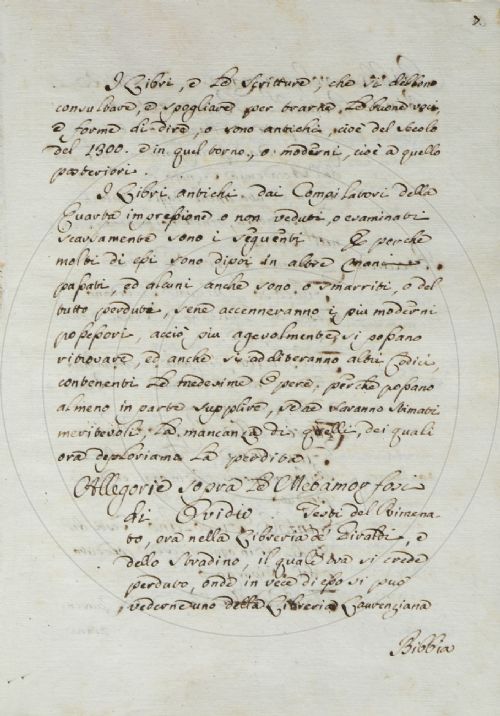 I Libri, e le Scritture, che si debbono
consultare, e spogliare per trarne le buone voci
e forme di dire, o sono antichi, cioè del secolo
del 1300. e in quel torno, o moderni, cioè a quello
posteriori.
I Libri antichi dai Compilatori della
Quarta impressione o non veduti, o esaminati
scarsamente sono i seguenti. E perche
molti di essi sono dipoi in altre mani
passati, ed alcuni anche sono o smarriti, o del
tutto perduti, sene accenneranno i più moderni
possessori, acciò più agevolmente si possano
ritrovare, ed anche si additeranno altri Codici,
contenenti le medesime Opere; perche possano
almeno in parte supplire, se saranno stimati
meritevoli la mancanza di quelli, dei quali
ora deploriamo la perdita
Allegorie sopra le Metamorfosi
di Ovidio Testi del Cimena-
to, ora nella Libreria de Giraldi, e
dello Stradino, il quale ora si crede
perduto, onde in vece di esso si può
vederne uno della Libreria Laurenziana
Bibbia